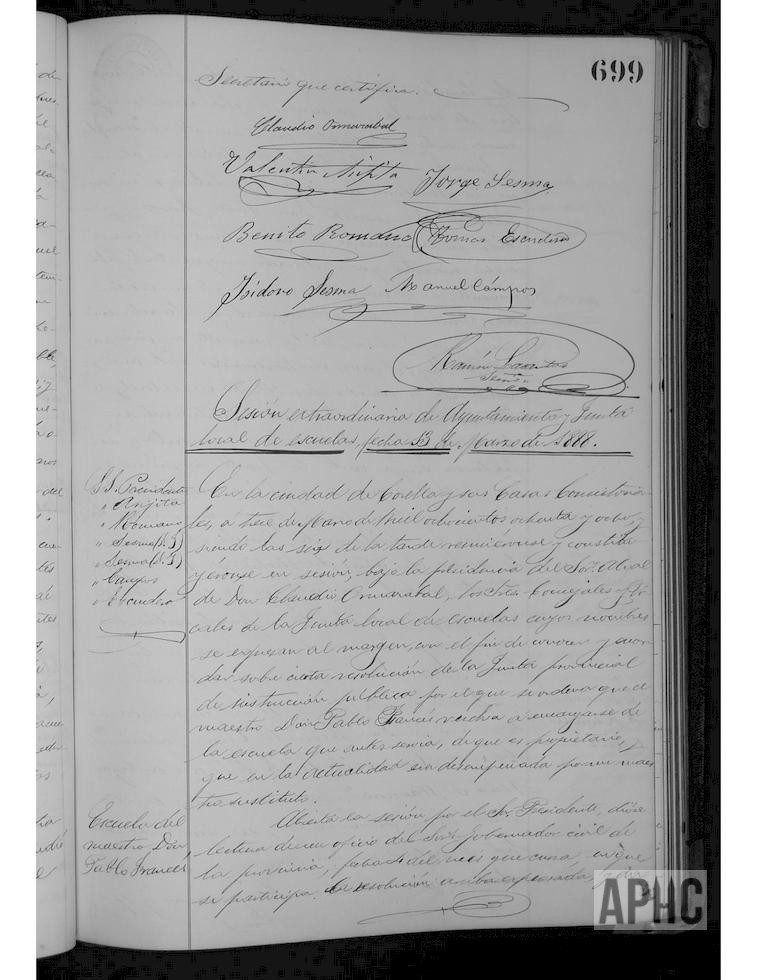 699
Secretario que certifica.
Claudio Omarabal
Valentin Jorge Sesma
Benito Romano Tomas Escudero
Isidoro Sesma Manuel Cámpos
Ramón
Sesión extraordinaria de Ayuntamiento y Junta
local de escuelas, fecha 13 de Marzo de 1888.
S.S. Presidente
" Romano
" Sesma (D. J)
" Sesma (D. I)
" Campos
" Escudero
En la ciudad de Corella y sus Casas Consistoria-
les, á trece de Marzo de mil ochocientos ochenta y ocho,
siendo las seis de la tarde reunieronse y constitu-
yéronse en sesión, bajo la presidencia del Sor. Alcal
de Don Claudio Omarabal, los Sres. Concejales y Vo-
cales de la Junta local de escuelas cuyos nombres
se expresan al margen, con el fin de conocer y acor-
dar sobre cierta resolución de la Junta provincial
de instrucción pública por el que se ordena que el
maestro Don Pablo Francés vuelva a encargarse de
la escuela que antes servia, de que es propietario, y
que en la actualidad sea desempeñada por un maes
tro sustituto.
Escuela del
maestro Don
Pablo Francés
Abierta la sesión por el Sor. Presidente, dióse
lectura de un oficio del Señor Gobernador civil de
la provincia, fecha del mes que cursa, en que
se participa la resolución arriba expresada,
APHC